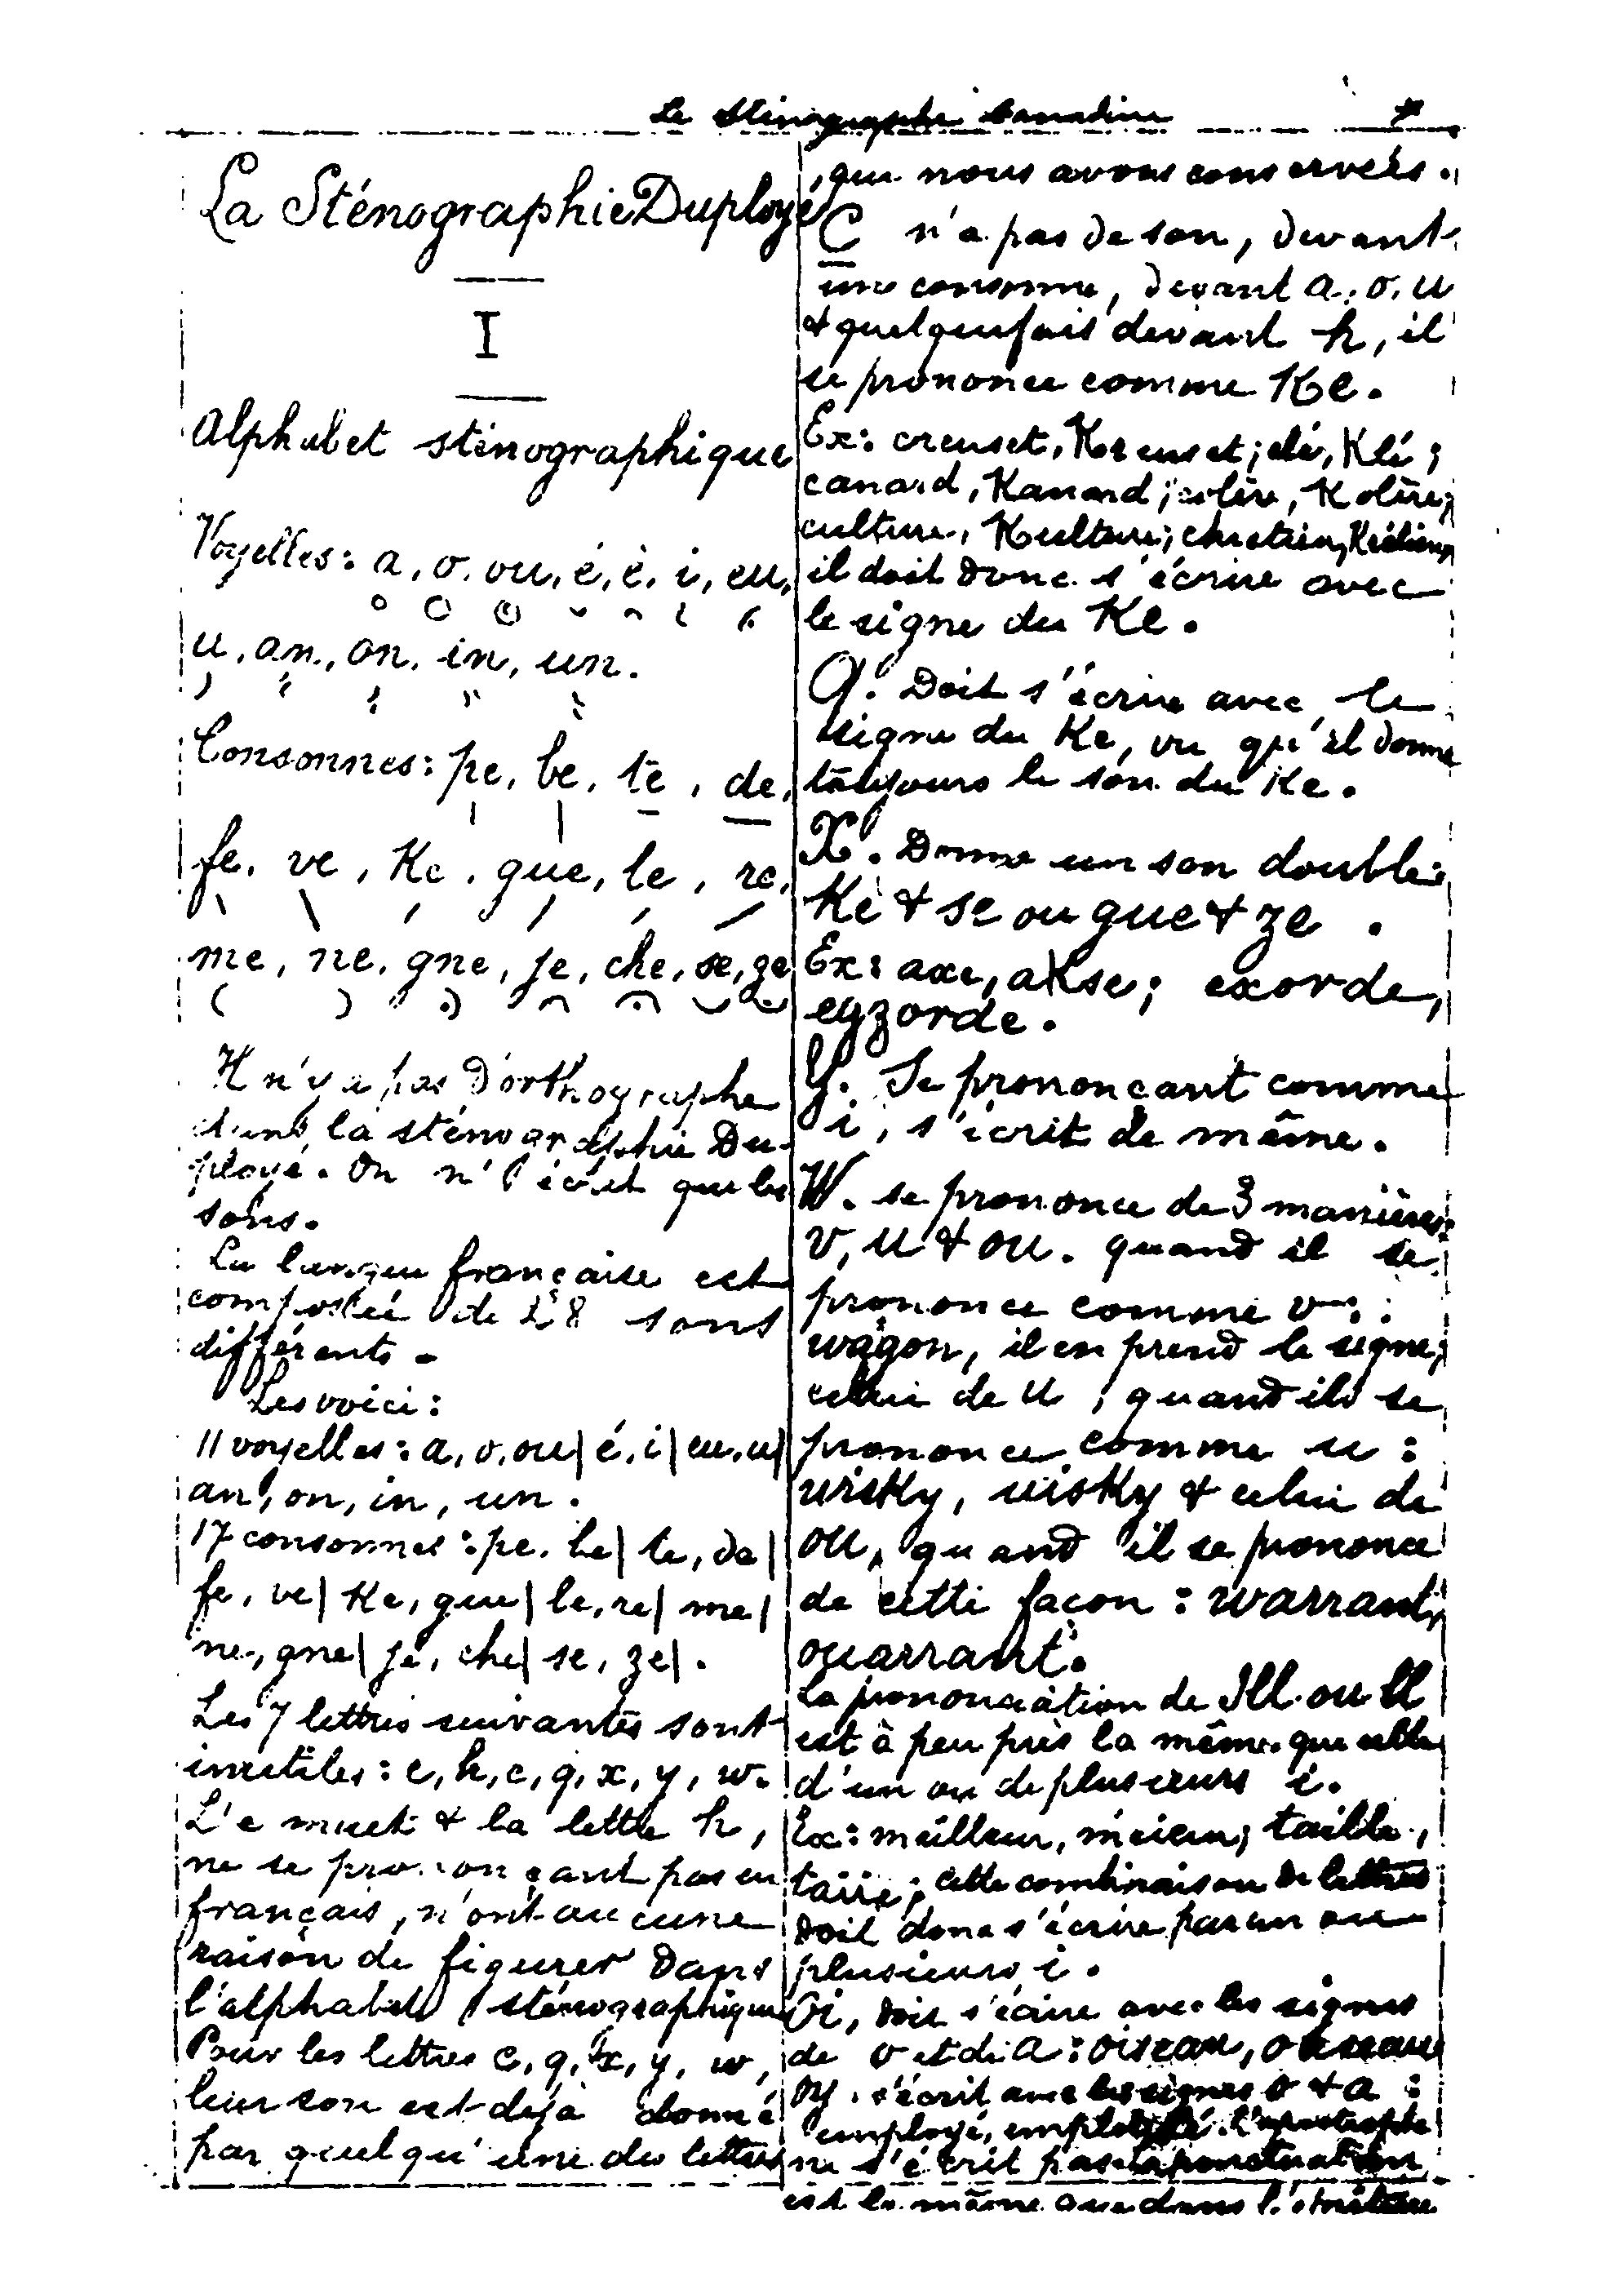 Le Sténographe Canadien
La Sténographie Duployé
I
Alphabet sténographique
Voyelles: a, o, ou, é, è, i, eu,
u, an, on, in, un.
Consonnes: pe, be, te, de,
fe, ve, Ke, gue, le, re,
me, ne, gne, je, che, se, ze
Il n'y a pas d'orthographe
dans la sténographie Du-
ployé. On n'écrit que les
sons.
La langue française est
composée de 28 sons
différents.
Les voici:
11 voyelles: a, o, ou| é, i| eu, u|
an, on, in, un.
17 consonnes: pe, be| te, de|
fe, ve| Ke, gue| le, re| me|
ne, gne| je, che| se, ze|.
Les 7 lettres suivantes sont
inutiles: e, h, c, q, x, y, w.
L'e muet & la lettre h,
ne se prononçant pas en
français, n'ont aucune
raison de figurer dans
l'alphabet sténographique
Pour les lettres c, q, x, y, w,
leur son est déjà donné
par quelqu'une des lettres
que nous avons conservées.
C n'a pas de son, devant
une consonne, devant a, o, u
& quelquefois devant h, il
se prononce comme Ke.
Ex: creuset, Kreuset; clé, Klé;
canard, Kanard; colère, Kolère;
culture, Kulture; chrétien, Krétien,
il doit donc s'écrire avec
le signe du Ke.
Q. Doit s'écrire avec le
signe du Ke, vu qu'il donne
toujours le son du Ke.
X. Donne un son double:
Ke & se ou gue & ze.
Ex: axe, aKse; exorde,
egzorde.
Y. Se prononçant comme
i, s'écrit de même.
W. se prononce de 3 manières:
v, u & ou. quand il se
prononce comme v:
wagon, il en prend le signe;
celui de u, quand il se
prononce comme u:
wisKy, uisKy & celui de
ou, quand il se prononce
de cette façon: warrant,
ouarrant.
La prononciation de Ill ou ll
est à peu près la même que celle
d'un ou de plusieurs i.
Ex: meilleur, meieur; taille,
taiie; cette combinaison de lettres
doit donc s'écrire par un ou
plusieurs i.
Oi, doit s'écrire avec les signes
de o et de a: oiseau, oaseau
oy s'écrit avec les signes o & a:
employé, l'apostrophe
ne s'écrit pas la ponctuation
est la même que dans l'écriture